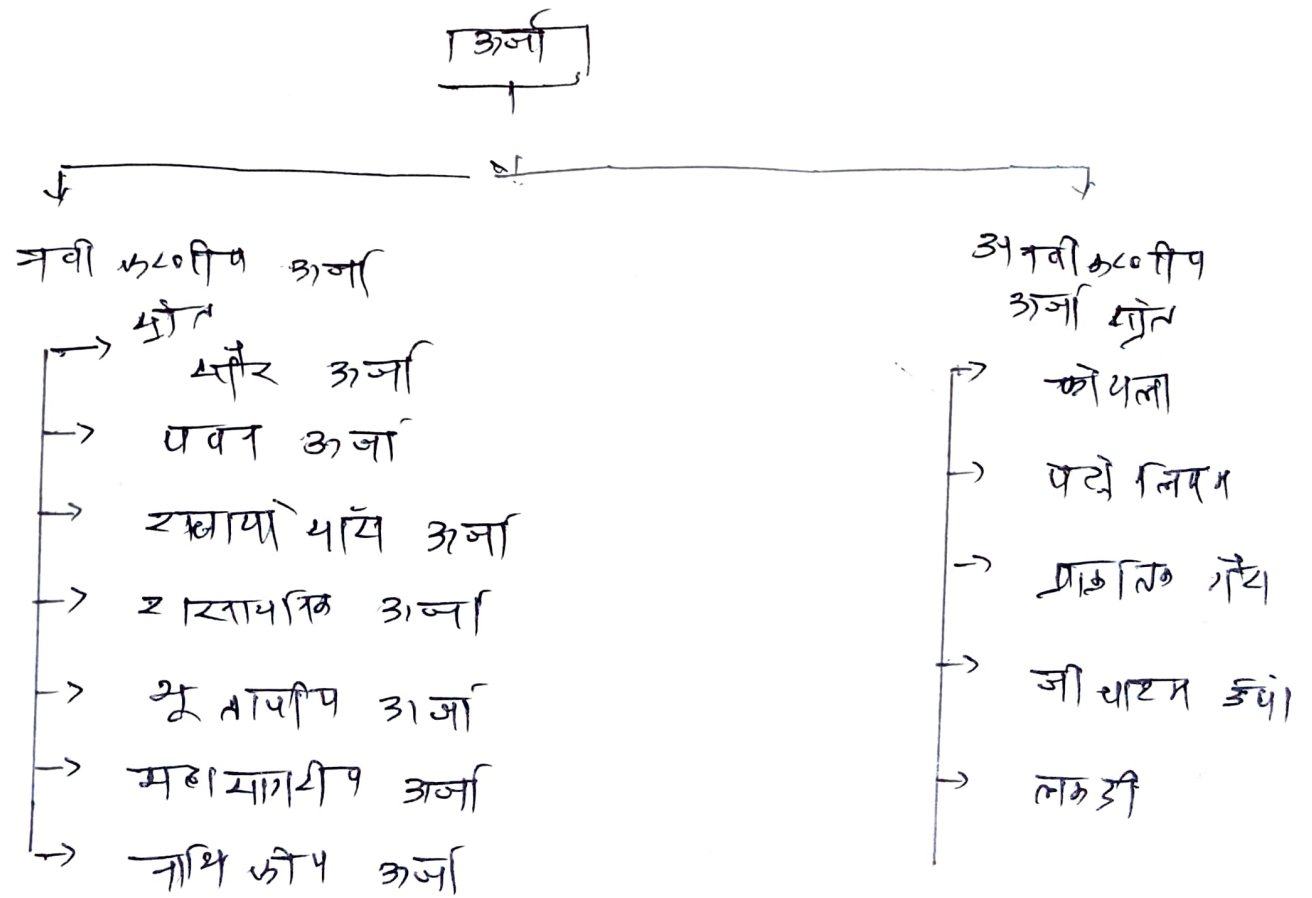 ऊर्जा
नवीकरणीय ऊर्जा
स्रोत
सौर ऊर्जा
पवन ऊर्जा
ऊर्जा
रासायनिक ऊर्जा
भू तापीय ऊर्जा
महासागरीय ऊर्जा
नाभिकीय ऊर्जा
अनवीकरणीय
ऊर्जा स्रोत
कोयला
पेट्रोलियम
प्राकृतिक गैस
जीवाश्म
लकडी